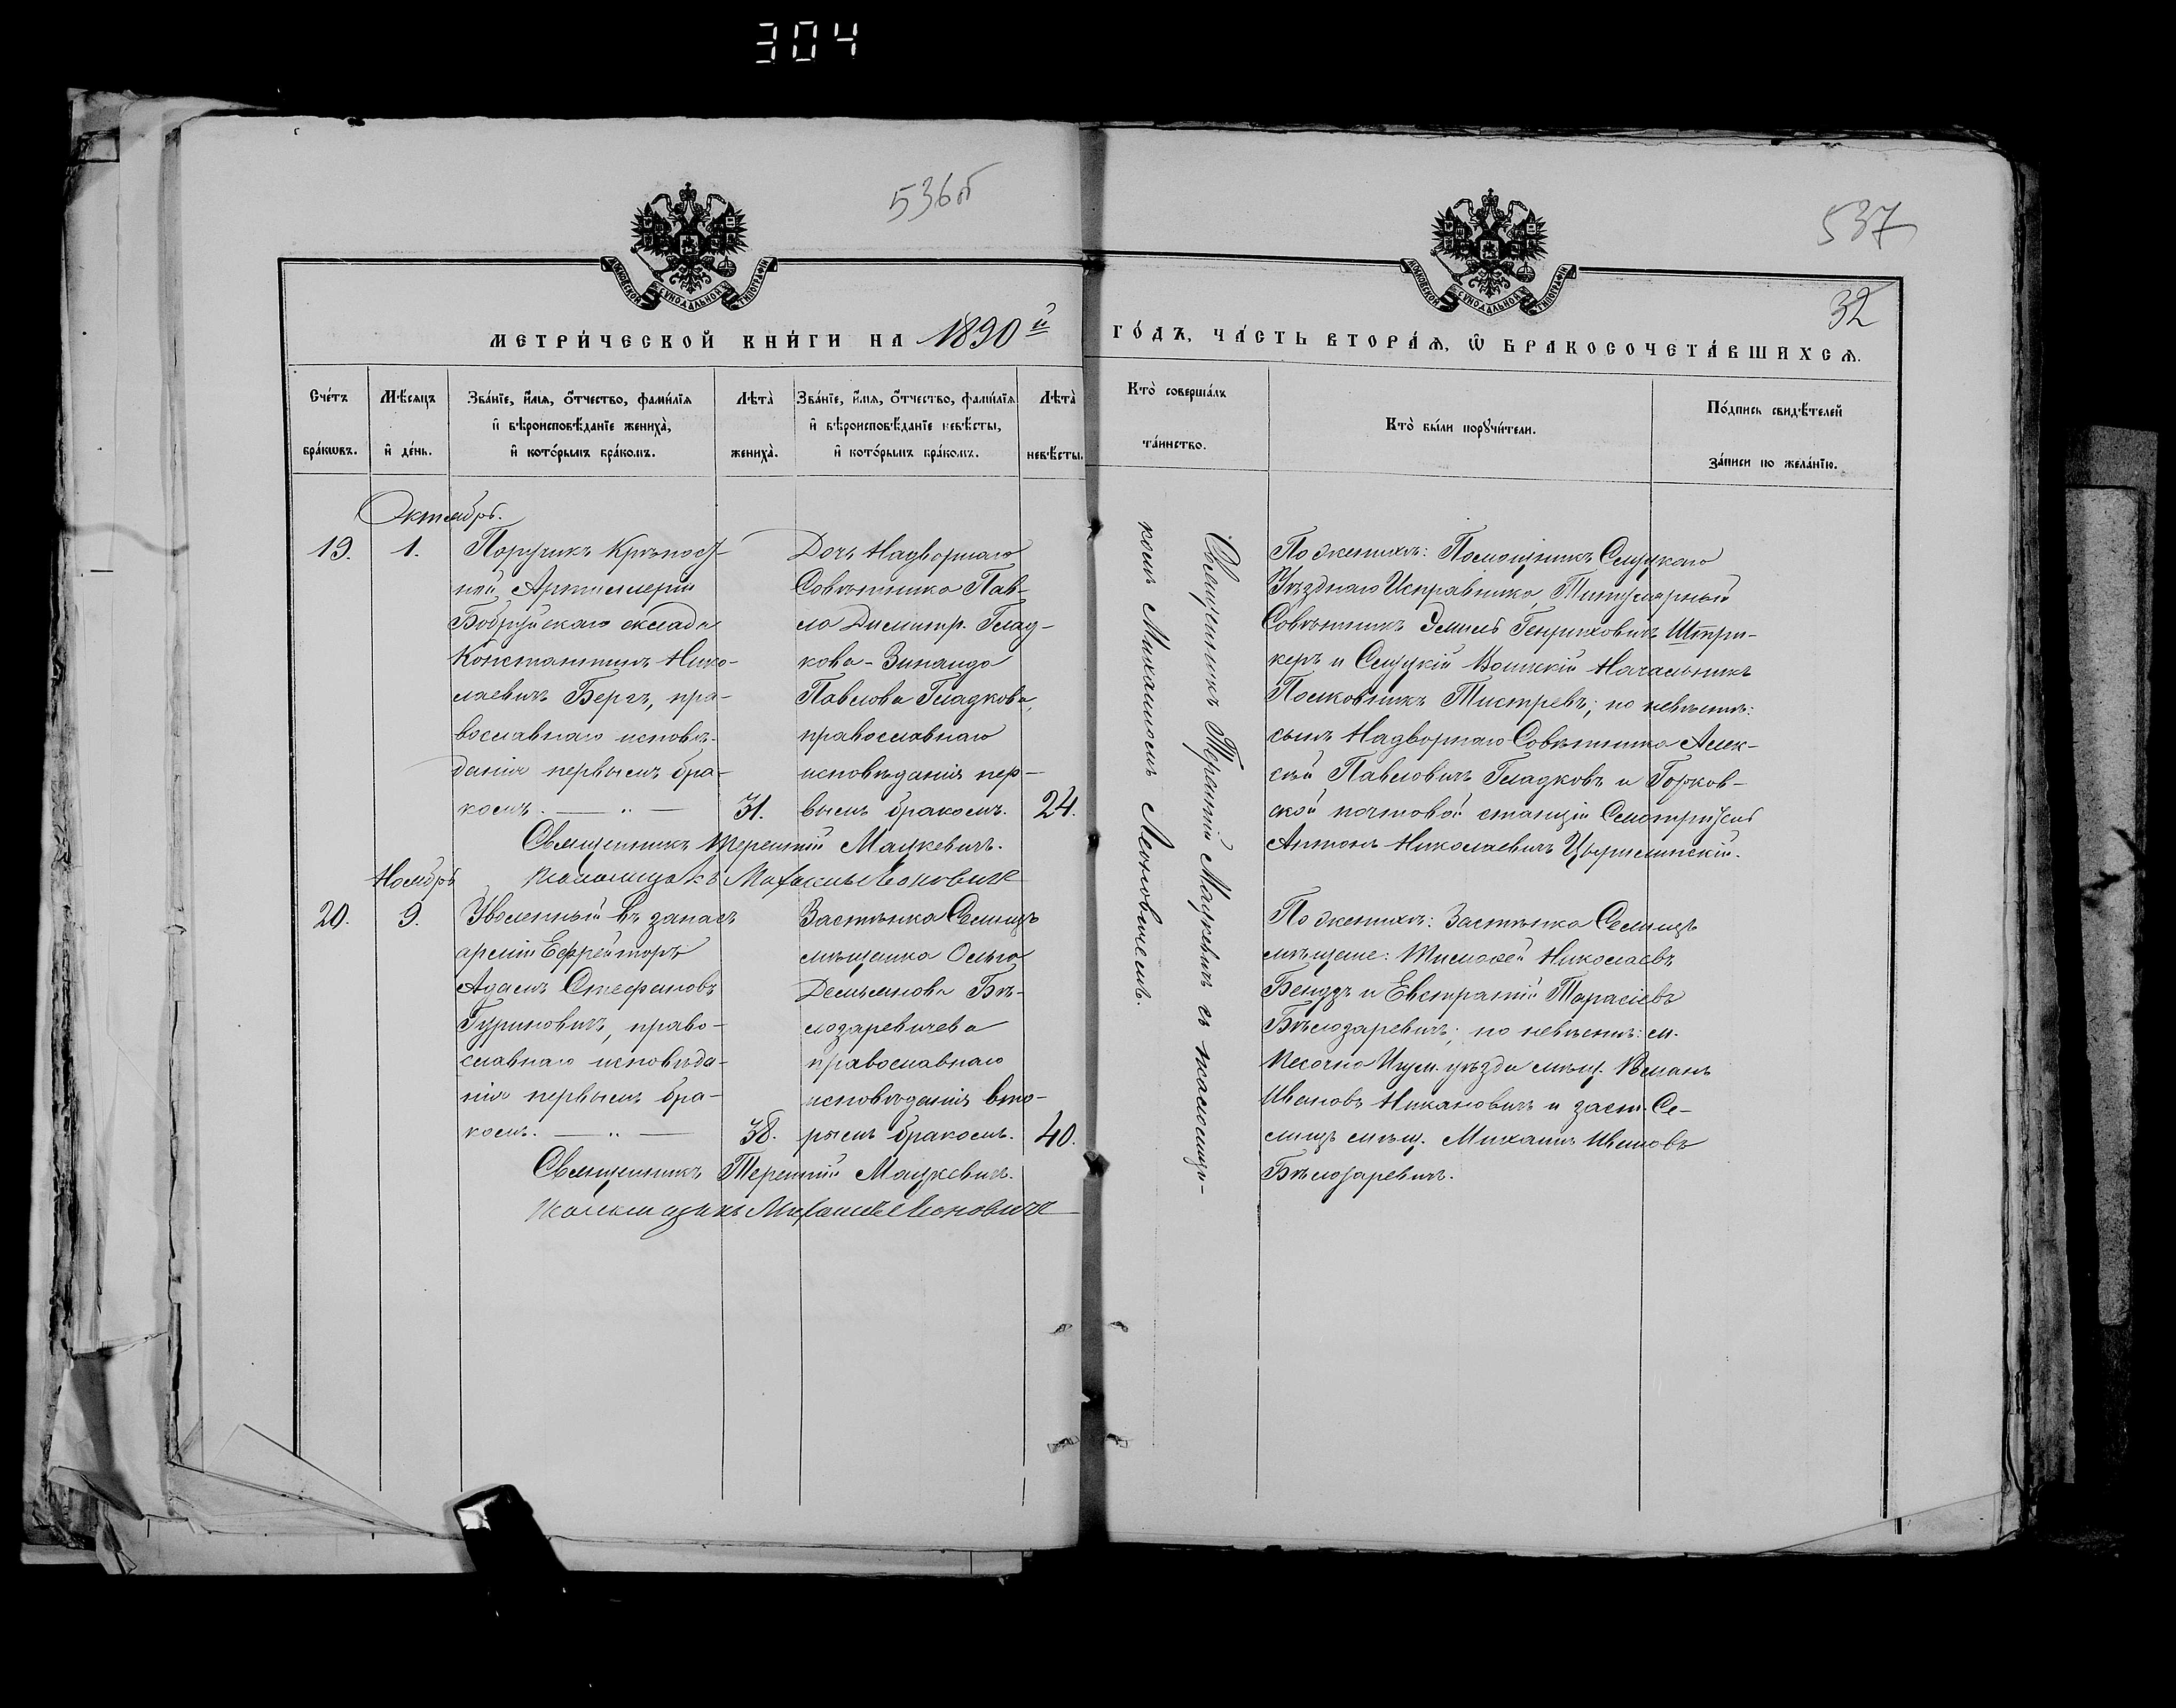 304
536б
537
32
МОСКОВСКОЙ СУНОДАЛЬНОЙ ТИПОГРАФІИ
МОСКОВСКОЙ СУНОДАЛЬНОЙ ТИПОГРАФІИ
МЕТРИ́ЧЕСКОЙ КНИ́ГИ НА 1890й
ГО́ДЪ, ЧА́СТЬ ВТОРА́Ѧ, Ѽ БРАКОСОЧЕТА́ВШИХСѦ.
Сче́тъ бра́кѡвъ.
Мѣ́сяцъ и҆ де́нь.
Зва́нїе, и҆́мя, ѻ҆́тчество, фами́лїя
и҆ вѣроисповѣ́данїе жениха̀,
и҆ кото́рымъ бра́комъ.
Лѣта̀ жениха̀.
Зва́нїе, и҆́мя, ѻ҆́тчество, фами́лїя
и҆ вѣроисповѣ́данїе невѣ́сты,
и҆ кото́рымъ бра́комъ.
Лѣта̀ невѣ́сты.
Кто̀ соверша́лъ
та́инство.
Кто̀ бы́ли порꙋчи́тели.
По́дпись свидѣ́телей
за́писи по жела́нїю.
Октябрь.
19.
1.
Поручикъ Крѣпост-
ной Артиллеріи
Бобруйскаго склада
Константинъ Нико-
лаевичъ Бергъ, пра-
вославнаго исповѣ-
данія первымъ бра-
комъ. — „ —
31.
Дочь Надворнаго
Совѣтника Пав-
ла Димитр. Глад-
кова - Зинаида
Павлова Гладкова,
православнаго
исповѣданія пер-
вымъ бракомъ.
24.
Священникъ Терентій Мацкевичъ.
Псаломщикъ Михаилъ Леоновичъ
Священникъ Терентій Мацкевичъ съ псаломщи-
комъ Михаиломъ Леоновичемъ.
По женихѣ: Помощникъ Слуцкаго
Уѣзднаго Исправника, Титулярный
Совѣтникъ Эмилъ Генриховичъ Штри-
керъ и Слуцкій Воинскій Начальникъ
Полковникъ Тистревъ; по невѣстѣ:
сынъ Надворнаго Совѣтника Алек-
сѣй Павловичъ Гладковъ и Горков-
ской почтовой станціи Смотритель
Антонъ Николаевичъ
Ноябрь
20.
9.
Уволенный въ запасъ
арміи Ефрейторъ
Адамъ Стефановъ
Гуриновичъ, право-
славнаго исповѣда-
нія первымъ бра-
комъ. — „ —
38.
Застѣнка Селищъ
мѣщанка Ольга
Демьянова Бѣ-
лозаревичева
православнаго
исповѣданія вто-
рымъ бракомъ.
40.
Священникъ Терентій Мацкевичъ.
Псаломщикъ Михаилъ Леоновичъ
По женихѣ: Застѣнка Селищъ
мѣщане: Тимофей Николаевъ
Бендзъ и Евстратій Тарасіевъ
Бѣлозаревичъ; по невѣстѣ: м.
Песочно Игум. уѣзда мѣщ. Романъ
Ивановъ Никановичъ и заст. Се-
лищъ мѣщ. Михаилъ Ивановъ
Бѣлозаревичъ.